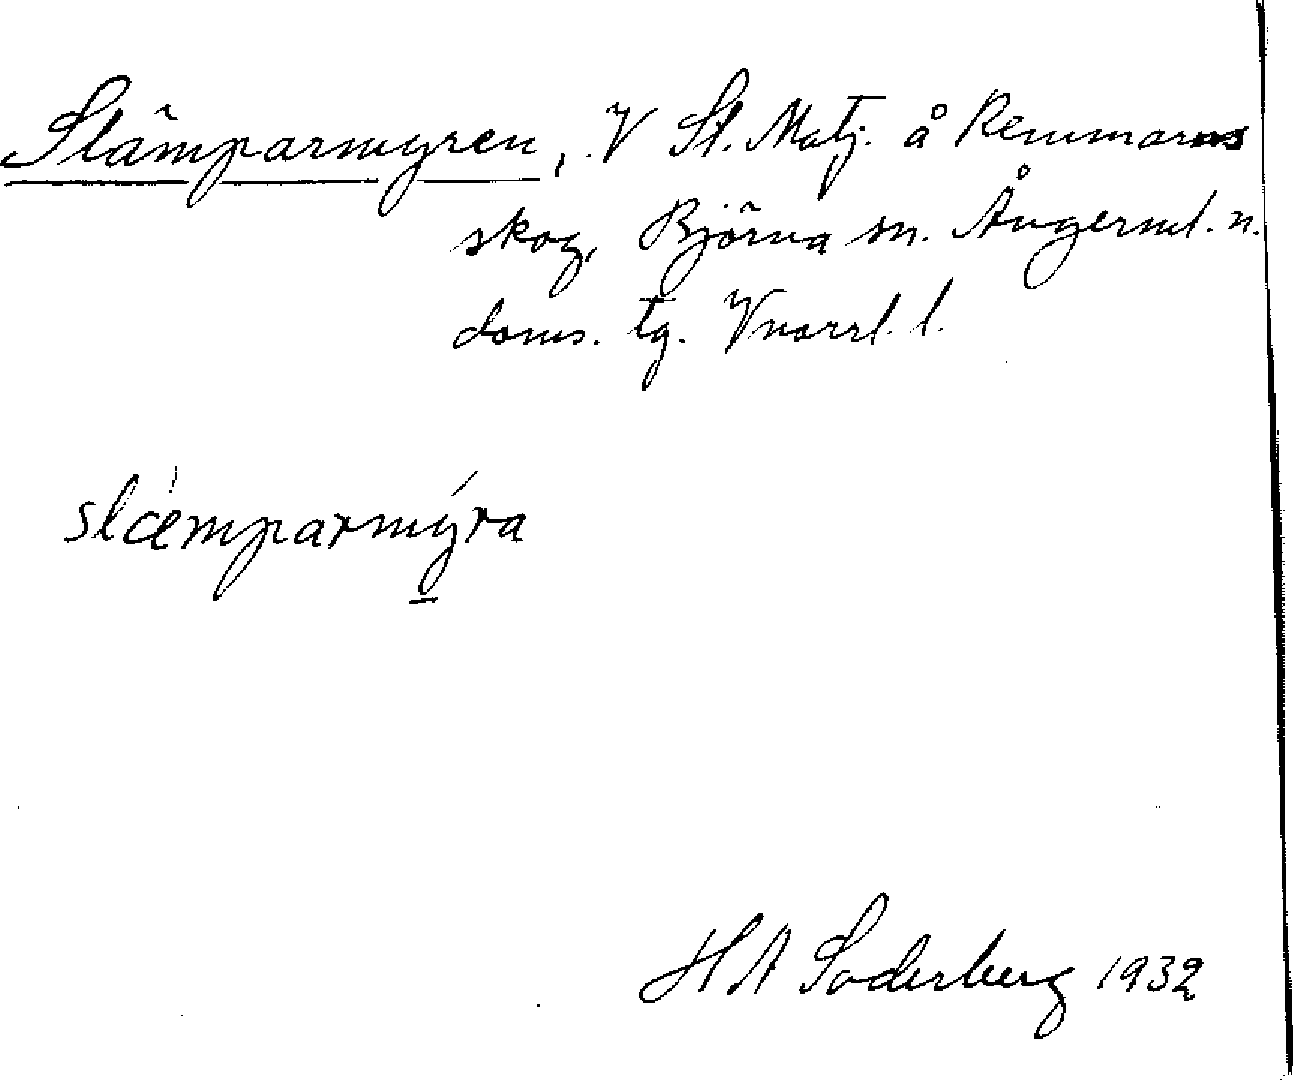 Slämparmyren, V St. Matj. å Remmarns
skog, Björna sn. Ångerml. n.
doms. tg. Vnorrl. l.
slæmparmýra
H A Söderberg 1932